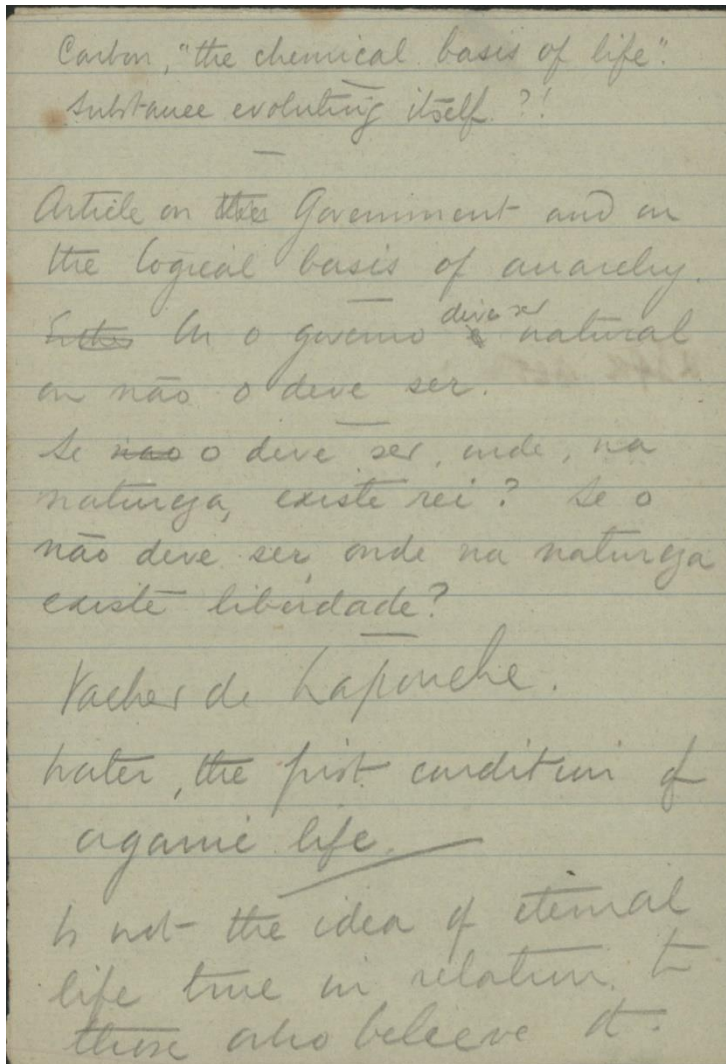 Carbon, "the chemical basis of life".
Substance evoluting itself?!
Article on this Government and on
the logical basis of anarchy.
Ou o governo deve ser natural
ou não o deve ser.
Se não o deve ser, onde, na
natureza, existe rei? Se o
não deve ser, onde na natureza
existe liberdade?
Vacher de Lapouche.
Water, the first condition of
organic life.
Is not the idea of eternal
life true in relation to
those who believe it.